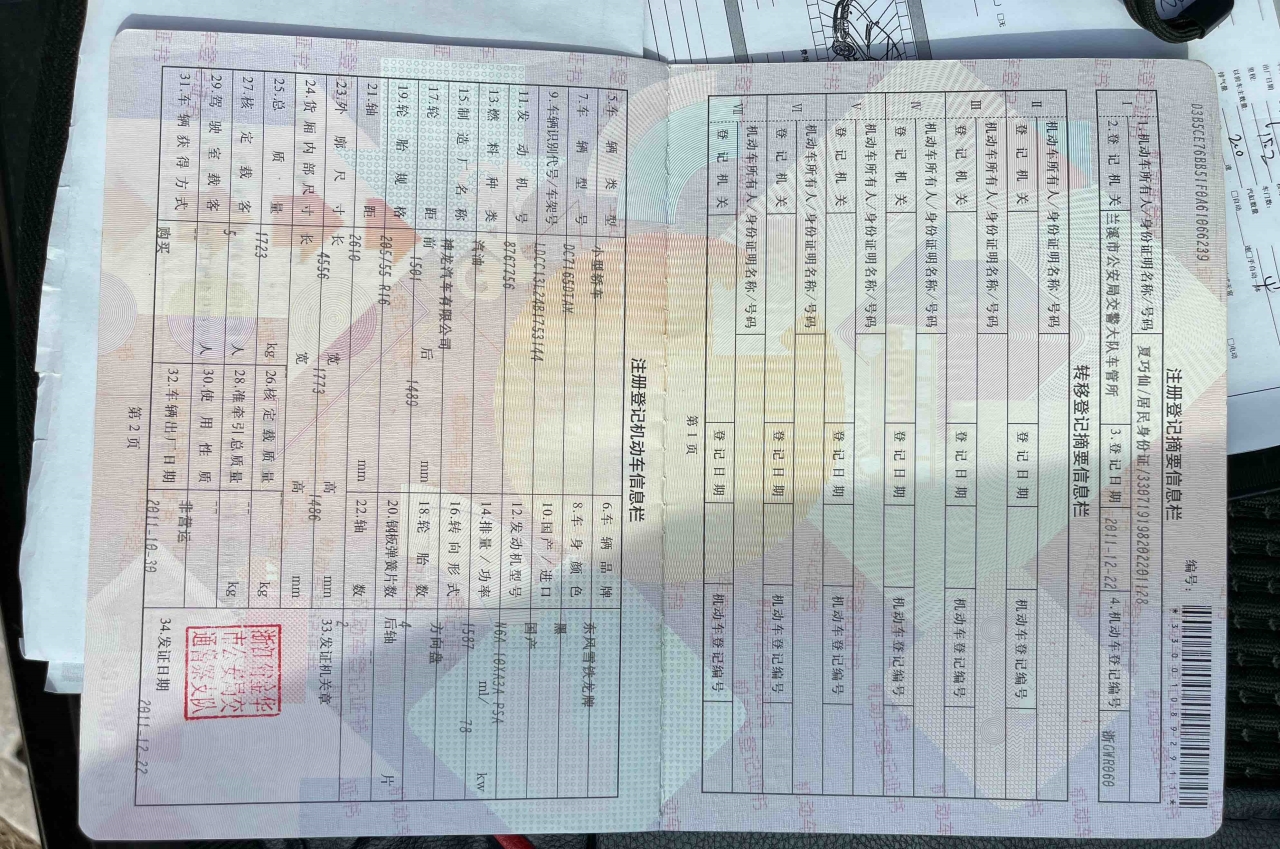 注册登记摘要信息栏
编号：
*330010892913*
03B5CE76BB51F0A61066239
Ⅰ
1.机动车所有人/身份证明名称/号码 夏巧仙/居民身份证/330719198202201128
2.登记机关 兰溪市公安局交警大队车管所 3.登记日期 2011-12-22 4.机动车登记编号 浙GWR060
转移登记摘要信息栏
Ⅱ 机动车所有人/身份证明名称/号码
登记机关 登记日期 机动车登记编号
Ⅲ 机动车所有人/身份证明名称/号码
登记机关 登记日期 机动车登记编号
Ⅳ 机动车所有人/身份证明名称/号码
登记机关 登记日期 机动车登记编号
Ⅴ 机动车所有人/身份证明名称/号码
登记机关 登记日期 机动车登记编号
Ⅵ 机动车所有人/身份证明名称/号码
登记机关 登记日期 机动车登记编号
Ⅶ 机动车所有人/身份证明名称/号码
登记机关 登记日期 机动车登记编号
第1页
注册登记机动车信息栏
5.车辆类型 小型轿车 6.车辆品牌 东风雪铁龙牌
7.车辆型号 DC7165DTAM 8.车身颜色 黑
9.车辆识别代号/车架号 LDCC13L24B1753144 10.国产/进口 国产
11.发动机号 8767756 12.发动机型号 N6A 10XA3A PSA
13.燃料种类 汽油 14.排量/功率 1587 ml/ 78 kw
15.制造厂名称 神龙汽车有限公司 16.转向形式 方向盘
17.轮距 前 1501 后 1489 mm 18.轮胎数 4
19.轮胎规格 205/55 R16 20.钢板弹簧片数 后轴 片
21.轴距 2610 mm 22.轴数 2
23.外廓尺寸 长 4556 宽 1773 高 1486 mm 33.发证机关章
24.货厢内部尺寸 长 宽 高 mm
25.总质量 1723 kg 26.核定载质量 -- kg
27.核定载客 5 人 28.准牵引总质量 -- kg
29.驾驶室载客 -- 人 30.使用性质 非营运
31.车辆获得方式 购买 32.车辆出厂日期 2011-10-30 34.发证日期 2011-12-22
浙江省金华
市公安局交
通警察支队
第2页